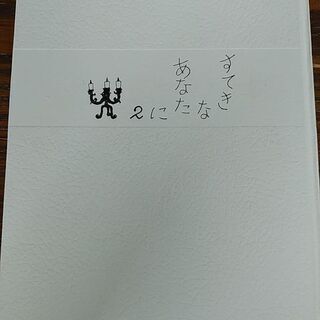 すてきな
あなたに
2